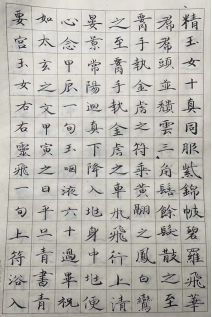 精玉女十真同服紫錦帔碧羅飛華
帬帬頭並頹雲三角髻餘髮散之至
膋手執金虎之符乘黃翮之鳳白鸞
之至膋手執金虎之車飛行上清
晏景常陽迴真下降入地身中地便
心念甲辰一旬玉咽液六十過畢祝
如太玄之文甲寅之日平旦青書青
要宮玉女右右靈飛一旬上符浴入